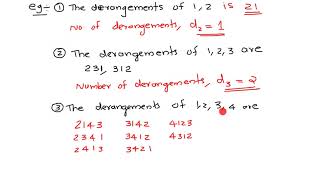 eg:- ① The derangements of 1,2 is 21
No of derangements, d₂ = 1
② The derangements of 1,2,3 are
231, 312
Number of derangements, d₃ = 2
③ The derangements of 1,2,3,4 are
2143 3142 4123
2341 3412 4312
2413 3421